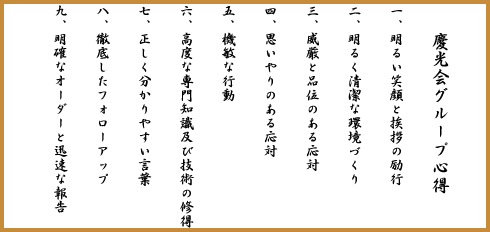 慶光会グループ心得
一、明るい笑顔と挨拶の励行
二、明るく清潔な環境づくり
三、威厳と品位のある応対
四、思いやりのある応対
五、機敏な行動
六、高度な専門知識及び技術の修得
七、正しく分かりやすい言葉
八、徹底したフォローアップ
九、明確なオーダーと迅速な報告